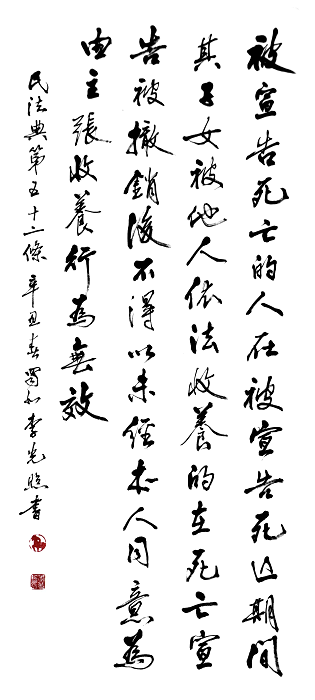 被宣告死亡的人在被宣告死亡期間
其子女被他人依法收養的在死亡宣
告被撤銷後不得以未經本人同意為
由主張收養行為無效
民法典第五十二條 辛丑春蜀 李光 書